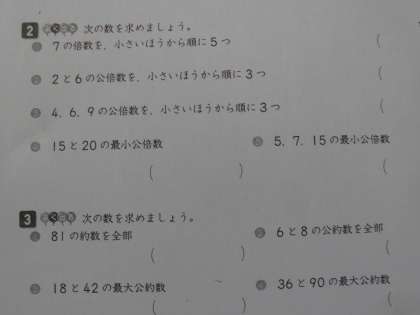 2 次の数を求めましょう。
① 7の倍数を、小さいほうから順に5つ
(
② 2と6の公倍数を、小さいほうから順に3つ
(
③ 4、6、9の公倍数を、小さいほうから順に3つ
(
④ 15と20の最小公倍数
( )
⑤ 5、7、15の最小公倍数
(
3 次の数を求めましょう。
① 81の約数を全部
( )
② 6と8の公約数を全部
(
③ 18と42の最大公約数
( )
④ 36と90の最大公約数
(